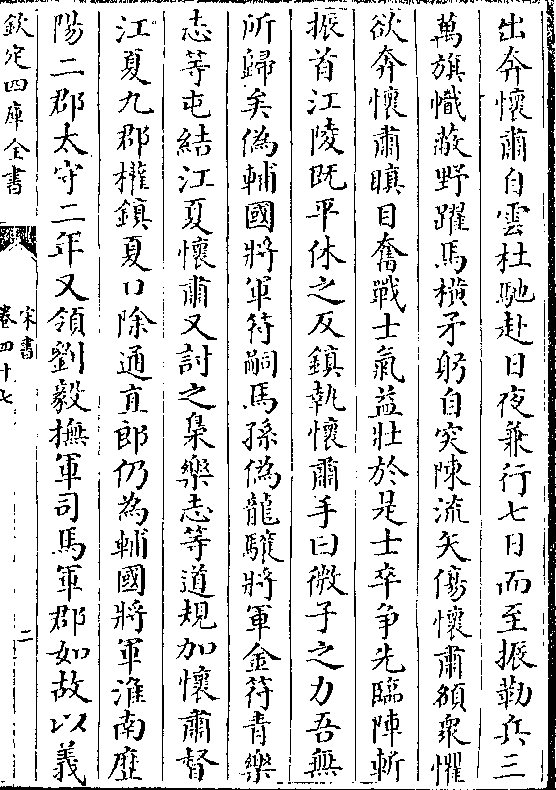 出奔懷肅自雲杜馳赴日夜兼行七日而至振勒兵三
萬旗幟蔽野躍馬橫矛躬自突陳流矢傷懷肅額衆懼
欲奔懷肅瞋目奮戰士氣益壯於是士卒争先臨陣斬
振首江陵既平休之反鎮執懷肅手曰微子之力吾無
所歸矣偽輔國將軍符嗣馬孫偽龍驤將軍金符青樂
志等屯結江夏懷肅又討之梟樂志等道規加懷肅督
江夏九郡權鎮夏口除通直郎仍為輔國將軍淮南歴
陽二郡太守二年又領劉毅撫軍司馬軍郡如故以義
欽定四庫全書
宋書
卷四十七
二